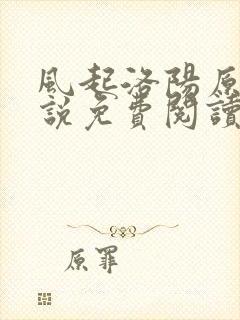 風起洛陽原
說免費閱讀
原罪